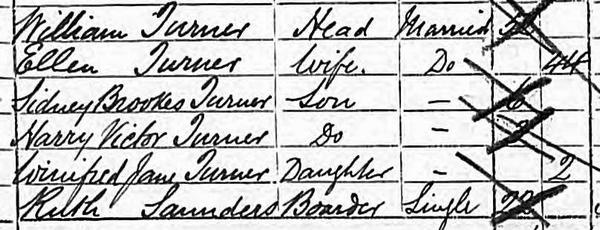 William Turner Head Married
Ellen Turner Wife. Do 44
Sidney Brookes Turner Son – 6
Harry Victor Turner Do – 3
Winifred Jane Turner Daughter – 2
Ruth Saunders Boarder Single